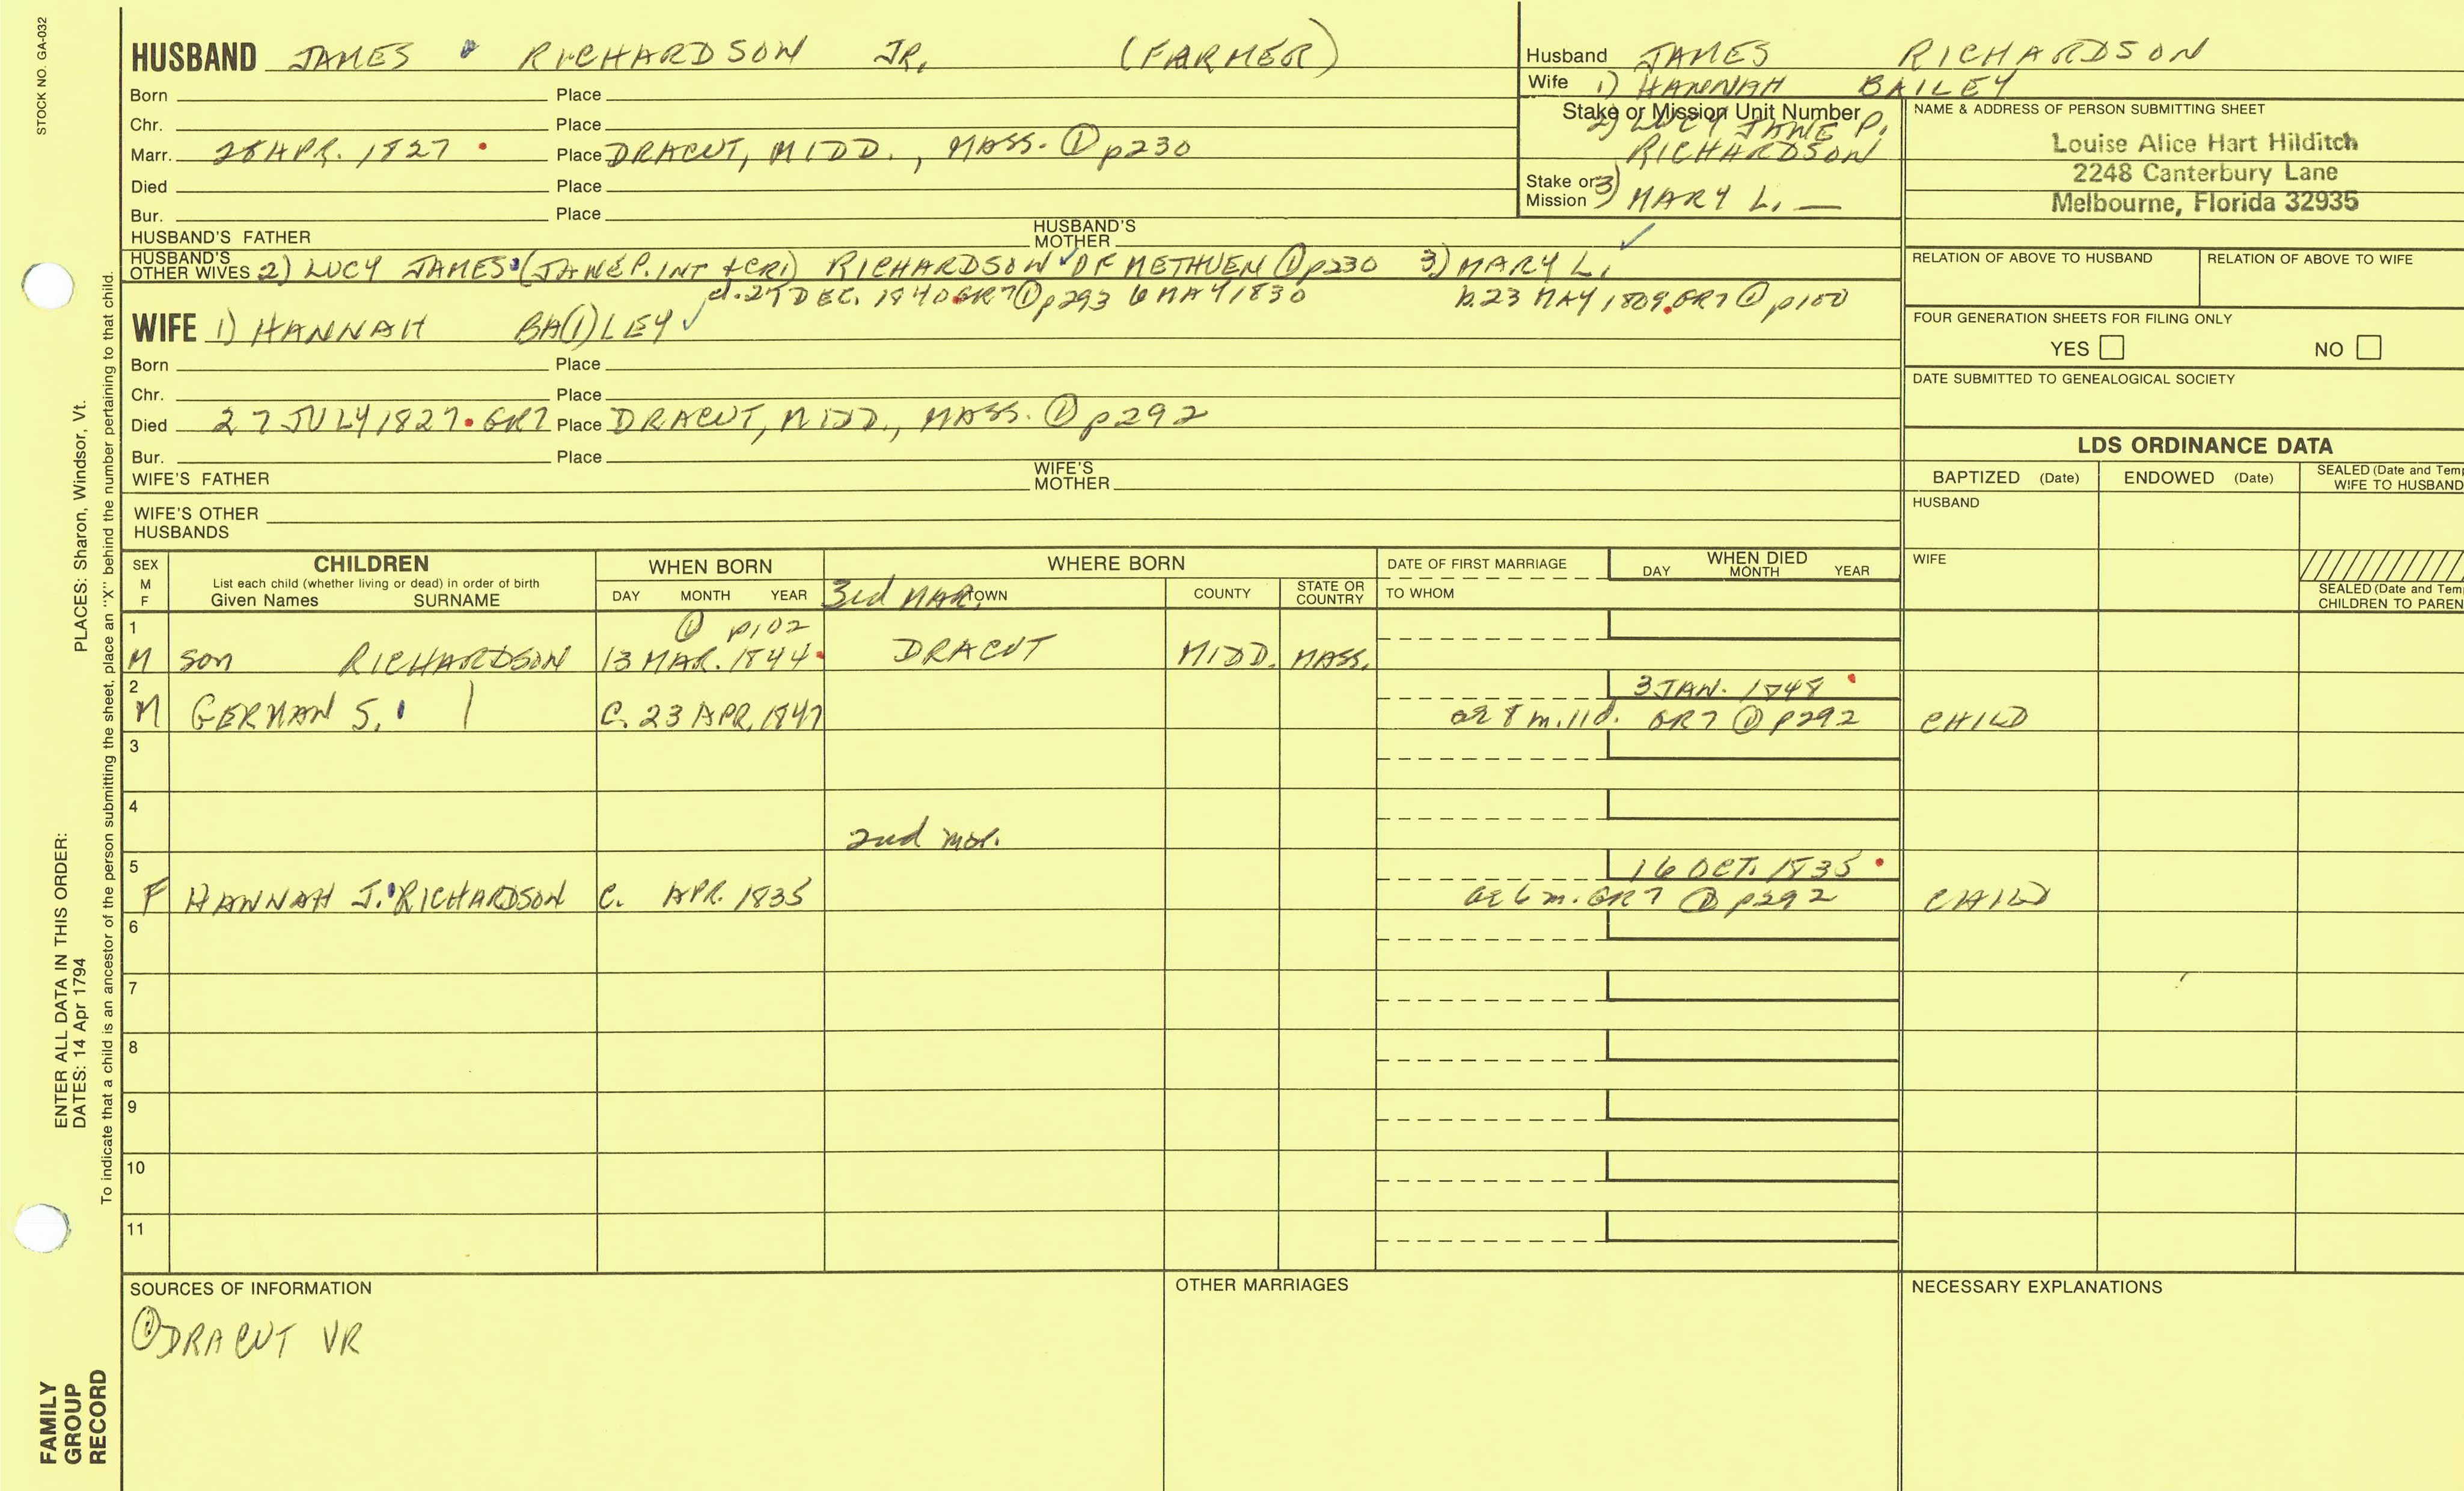 STOCK NO. GA-032
HUSBAND JAMES RICHARDSON JR. (FARMER)
Born Place
Chr. Place
Marr. 28 APR. 1827 Place DRACUT, MIDD., MASS. ① p230
Died Place
Bur. Place
HUSBAND'S FATHER HUSBAND'S MOTHER
HUSBAND'S OTHER WIVES 2) LUCY JAMES (JANE P. INT + CR1) RICHARDSON OF METHUEN ① p230 3) MARY L.
d. 27 DEC. 1840 GR7 ① p293 6 MAY 1830 b. 23 MAY 1809 GR7 ① p100
WIFE 1) HANNAH BA(I)LEY
Born Place
Chr. Place
Died 27 JULY 1827 GR7 Place DRACUT, MIDD., MASS. ① p292
Bur. Place
WIFE'S FATHER WIFE'S MOTHER
WIFE'S OTHER HUSBANDS
Husband JAMES RICHARDSON
Wife 1) HANNAH BAILEY
Stake or Mission Unit Number
2) LUCY JANE P.
RICHARDSON
Stake or Mission 3) MARY L. —
NAME & ADDRESS OF PERSON SUBMITTING SHEET
Louise Alice Hart Hilditch
2248 Canterbury Lane
Melbourne, Florida 32935
RELATION OF ABOVE TO HUSBAND RELATION OF ABOVE TO WIFE
FOUR GENERATION SHEETS FOR FILING ONLY
YES NO
DATE SUBMITTED TO GENEALOGICAL SOCIETY
LDS ORDINANCE DATA
BAPTIZED (Date) ENDOWED (Date) SEALED (Date and Temp
WIFE TO HUSBAND
HUSBAND
WIFE
SEALED (Date and Temp
CHILDREN TO PAREN
SEX M F CHILDREN WHEN BORN WHERE BORN DATE OF FIRST MARRIAGE WHEN DIED
List each child (whether living or dead) in order of birth
Given Names SURNAME DAY MONTH YEAR 3rd MAR. TOWN COUNTY STATE OR COUNTRY TO WHOM DAY MONTH YEAR
1 ① p102
M son RICHARDSON 13 MAR. 1844 DRACUT MIDD. MASS.
2 3 JAN. 1848
M GERMAN S. | C. 23 APR. 1847 ae 8 m. 11 d. GR7 ① p292 CHILD
3
4
2nd mar.
5 16 OCT. 1835
F HANNAH J. RICHARDSON C. APR. 1835 ae 6 m. GR7 ① p292 CHILD
6
7
8
9
10
11
SOURCES OF INFORMATION OTHER MARRIAGES NECESSARY EXPLANATIONS
① DRACUT VR
PLACES: Sharon, Windsor, Vt.
ENTER ALL DATA IN THIS ORDER:
DATES: 14 Apr 1794
To indicate that a child is an ancestor of the person submitting the sheet, place an "X" behind the number pertaining to that child.
FAMILY
GROUP
RECORD